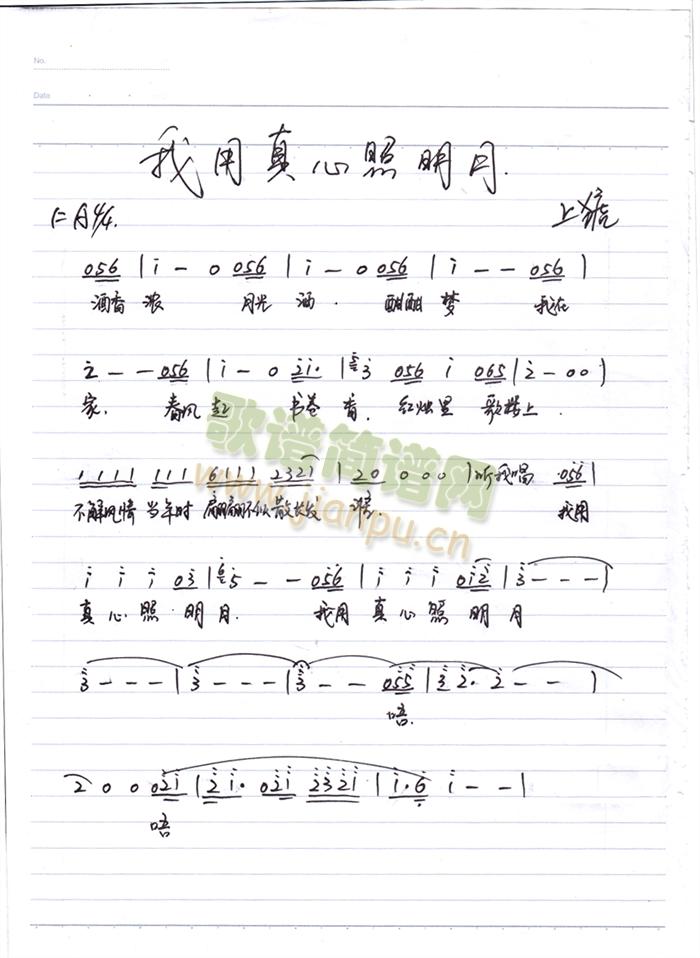 No.
Date
我用真心照明月.
1=A 4/4.
056 | i - 0 056 | i - 0 056 | i - - 056 |
酒香浓 月光 洒. 酣酣梦 我在
2 - - 056 | i - 0 2i. | 3 056 i 065 | 2 - 0 0 |
家. 春风起 书卷香. 红烛里 歌楼上.
1111 111 6111 2321 | 20 0 0 0 | 听我唱 056 |
不解风情 当年时 翩翩 散长发
我用
i i i 03 | 6 5 - - 056 | i i i 0i2 | 3 - - - |
真心照 明月. 我用真心照 明月
3 - - - | 3 - - - | 3 - - 055 | 3 2. 2 - - |
唔.
2 0 0 02i | 2i. 02i 2321 | i.6 i - - |
唔
歌谱简谱网
www.jianpu.cn